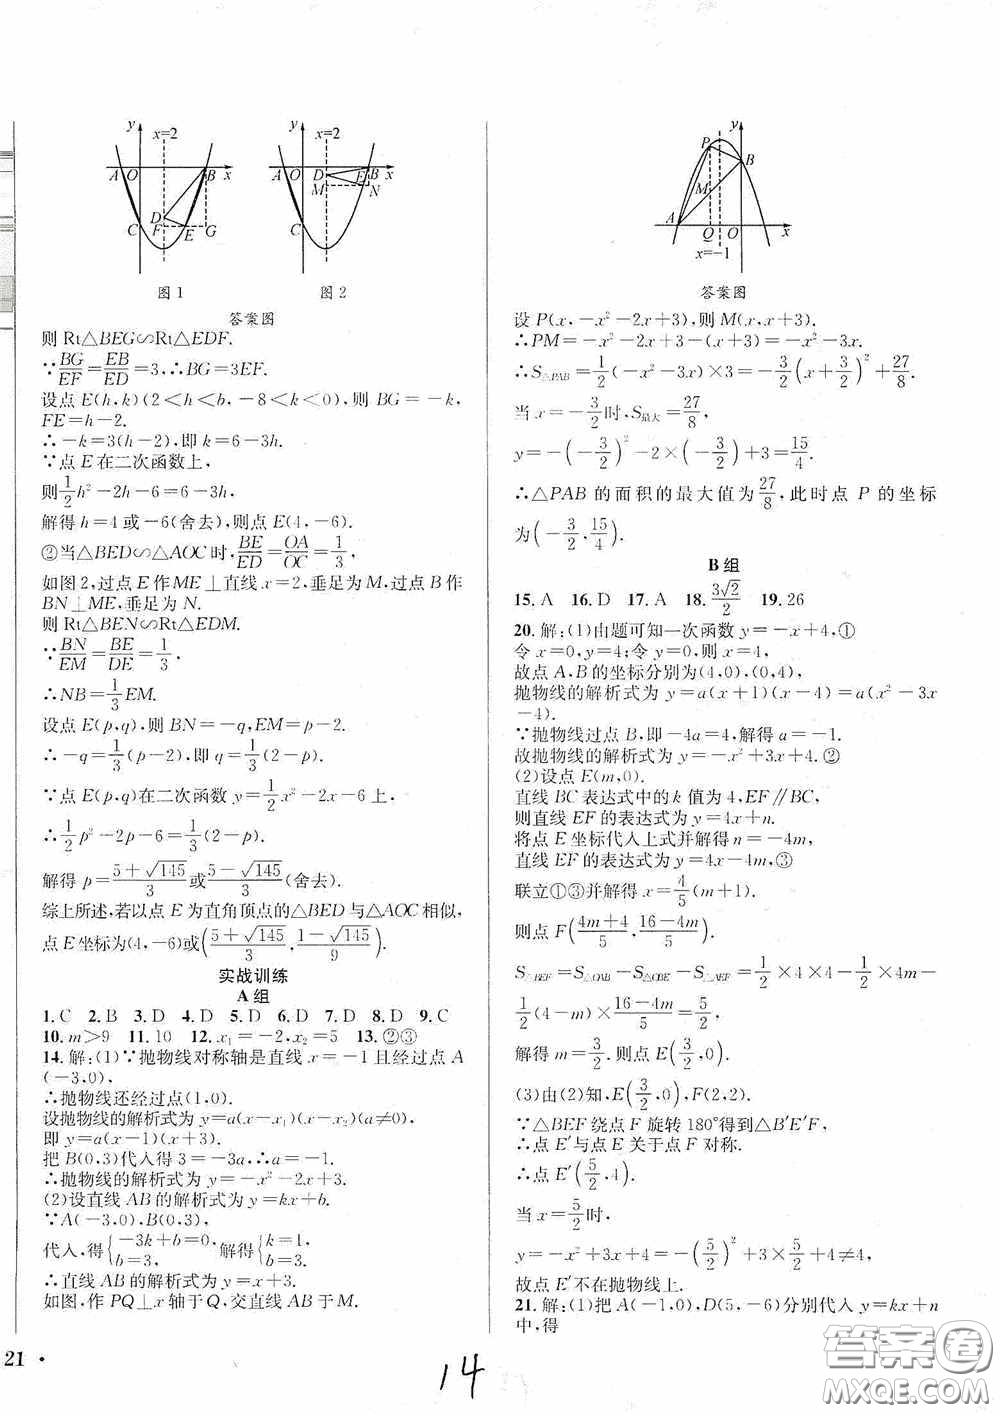 y
x=2
A O B x
D
C F E G
图1
y
x=2
A O D E B x
M N
C
图2
答案图
则 Rt△BEG∽Rt△EDF.
∵BG/EF=EB/ED=3,∴BG=3EF.
设点E(h,k)(2<h<b,-8<k<0),则 BG=-k,
FE=h-2.
∴-k=3(h-2),即 k=6-3h.
∵点 E 在二次函数上,
则1/2h²-2h-6=6-3h.
解得 h=4 或-6(舍去),则点E(4,-6).
②当△BED∽△AOC时,BE/ED=OA/OC=1/3,
如图2,过点E作ME⊥直线x=2,垂足为M,过点B作
BN⊥ME,垂足为N.
则 Rt△BEN∽Rt△EDM.
∵BN/EM=BE/DE=1/3.
∴NB=1/3EM.
设点E(p,q),则 BN=-q,EM=p-2.
∴-q=1/3(p-2),即 q=1/3(p-2).
∵点E(p,q)在二次函数 y=1/2x²-2x-6上,
∴1/2p²-2p-6=1/3(2-p).
解得 p=(5+√145)/3或(5-√145)/3(舍去).
综上所述,若以点E为直角顶点的△BED与△AOC相似,
点E坐标为(4,-6)或((5+√145)/3,(1-√145)/9).
实战训练
A组
1.C 2.B 3.D 4.D 5.D 6.D 7.D 8.D 9.C
10.m>9 11.10 12.x₁=-2,x₂=5 13.②③
14.解:(1)∵抛物线对称轴是直线x=-1且经过点A
(-3,0),
∴抛物线还经过点(1,0).
设抛物线的解析式为 y=a(x-x₁)(x-x₂)(a≠0),
即 y=a(x-1)(x+3).
把B(0,3)代入得3=-3a,∴a=-1.
∴抛物线的解析式为 y=-x²-2x+3.
(2)设直线AB的解析式为y=kx+b.
∵A(-3,0),B(0,3),
代入,得{-3k+b=0, b=3, 解得{k=1, b=3.
∴直线AB的解析式为y=x+3.
如图,作PQ⊥x轴于Q,交直线AB于M.
y
P
B
M
A Q O x
x=-1
答案图
设P(x,-x²-2x+3),则M(x,x+3).
∴PM=-x²-2x+3-(x+3)=-x²-3x.
∴S△PAB=1/2(-x²-3x)×3=-3/2(x+3/2)²+27/8.
当x=-3/2时,S最大=27/8,
y=-(-3/2)²-2×(-3/2)+3=15/4.
∴△PAB的面积的最大值为27/8,此时点P的坐标
为(-3/2,15/4).
B组
15.A 16.D 17.A 18.3√2/2 19.26
20.解:(1)由题可知一次函数 y=-x+4,①
令x=0,y=4;令y=0,则x=4,
故点A、B的坐标分别为(4,0),(0,4),
抛物线的解析式为 y=a(x+1)(x-4)=a(x²-3x
-4).
∵抛物线过点B,即-4a=4,解得a=-1.
故抛物线的解析式为 y=-x²+3x+4.②
(2)设点E(m,0).
直线BC表达式中的k值为4,EF∥BC,
则直线EF的表达式为y=4x+n.
将点E坐标代入上式并解得n=-4m,
直线EF的表达式为y=4x-4m,③
联立①③并解得x=4/5(m+1).
则点F((4m+4)/5,(16-4m)/5).
S△BEF=S△OAB-S△OBE-S△AEF=1/2×4×4-1/2×4m-
1/2(4-m)×(16-4m)/5=5/2,
解得m=3/2.则点E(3/2,0).
(3)由(2)知,E(3/2,0),F(2,2).
∵△BEF绕点F旋转180°得到△B′E′F,
∴点E′与点E关于点F对称.
∴点E′(5/2,4).
当x=5/2时,
y=-x²+3x+4=-(5/2)²+3×5/2+4≠4,
故点E′不在抛物线上.
21.解:(1)把A(-1,0),D(5,-6)分别代入y=kx+n
中,得
21 ·
14
答案卷
MXQE.COM